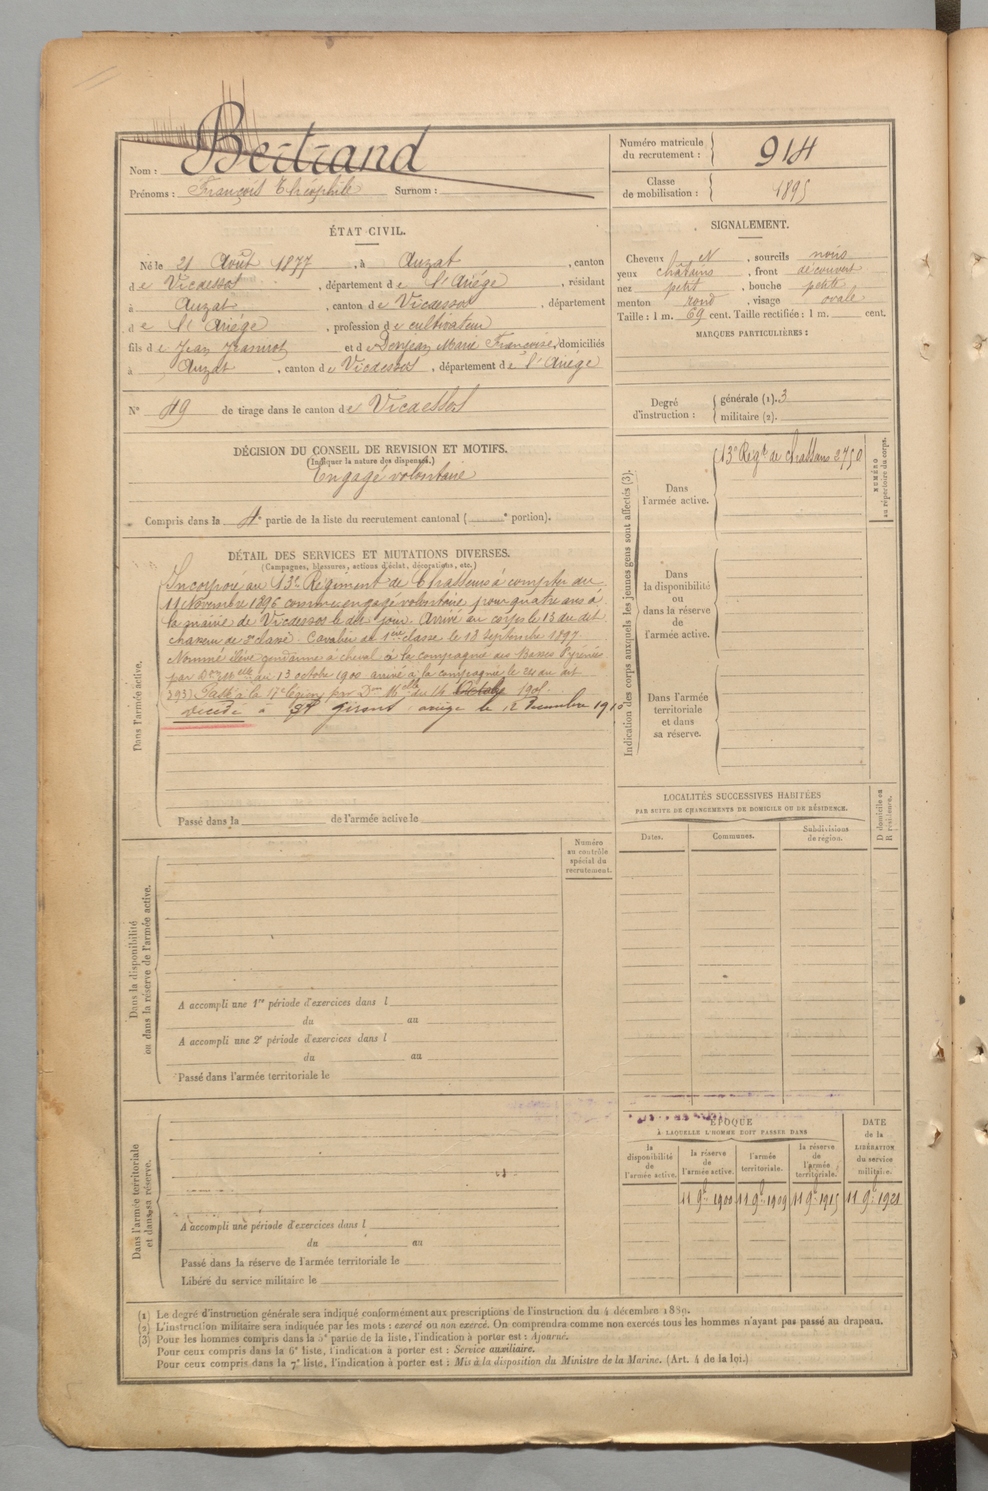 Nom : Bertrand
Prénoms : François Théophile Surnom :
Numéro matricule du recrutement : 914
Classe de mobilisation : 1895
ÉTAT CIVIL.
Né le 21 Août 1877, à Auzat, canton
de Vicdessos, département de l'Ariége, résidant
à Auzat, canton de Vicdessos, département
de l'Ariége, profession de cultivateur
fils de Jean Jeannot et de Denjean Marie Françoise, domiciliés
à Auzat, canton de Vicdessos, département de l'Ariége
N° 49 de tirage dans le canton de Vicdessos
SIGNALEMENT.
Cheveux N, sourcils noirs
yeux châtains, front découvert
nez petit, bouche petite
menton rond, visage ovale
Taille : 1 m. 69 cent. Taille rectifiée : 1 m. cent.
MARQUES PARTICULIÈRES :
Degré d'instruction : générale (1). 3
militaire (2).
DÉCISION DU CONSEIL DE REVISION ET MOTIFS.
(Indiquer la nature des dispenses.)
Engagé volontaire
Compris dans la 4e partie de la liste du recrutement cantonal ( e portion).
DÉTAIL DES SERVICES ET MUTATIONS DIVERSES.
(Campagnes, blessures, actions d'éclat, décorations, etc.)
Dans l'armée active.
Incorporé au 13e Régiment de Chasseurs à compter du
11 Novembre 1896 comme engagé volontaire pour quatre ans à
la mairie de Vicdessos le dit jour. Arrivé au corps le 13 du dit
chasseur de 2e classe. Cavalier de 1ere classe le 13 Septembre 1897.
Nommé élève gendarme à cheval à la compagnie des Basses Pyrénées
par Don Melle du 13 octobre 1900 arrivé à la compagnie le 24 du dit
Passé à la 17e légion par Don Melle du 14 Octobre 1901.
Décédé à St Girons ariège le 12 Decembre 1910
Passé dans la de l'armée active le
Indication des corps auxquels les jeunes gens sont affectés (3).
NUMÉRO au répertoire du corps.
Dans l'armée active.
13e Regt de chasseurs 2750
Dans la disponibilité ou dans la réserve de l'armée active.
Dans l'armée territoriale et dans sa réserve.
LOCALITÉS SUCCESSIVES HABITÉES
PAR SUITE DE CHANGEMENTS DE DOMICILE OU DE RÉSIDENCE.
Dates. Communes. Subdivisions de région.
D domicile ou R résidence.
Dans la disponibilité ou dans la réserve de l'armée active.
Numéro au contrôle spécial du recrutement.
A accompli une 1re période d'exercices dans l
du au
A accompli une 2e période d'exercices dans l
du au
Passé dans l'armée territoriale le
Dans l'armée territoriale et dans sa réserve.
A accompli une période d'exercices dans l
du au
Passé dans la réserve de l'armée territoriale le
Libéré du service militaire le
ÉPOQUE
À LAQUELLE L'HOMME DOIT PASSER DANS
la disponibilité de l'armée active.
la réserve de l'armée active.
l'armée territoriale.
la réserve de l'armée territoriale.
DATE de la LIBÉRATION du service militaire.
11 9bre 1900 11 9bre 1909 11 9bre 1915 11 9bre 1921
(1) Le degré d'instruction générale sera indiqué conformément aux prescriptions de l'instruction du 4 décembre 1889.
(2) L'instruction militaire sera indiquée par les mots : exercé ou non exercé. On comprendra comme non exercés tous les hommes n'ayant pas passé au drapeau.
(3) Pour les hommes compris dans la 5e partie de la liste, l'indication à porter est : Ajourné.
Pour ceux compris dans la 6e liste, l'indication à porter est : Service auxiliaire.
Pour ceux compris dans la 7e liste, l'indication à porter est : Mis à la disposition du Ministre de la Marine. (Art. 4 de la loi.)